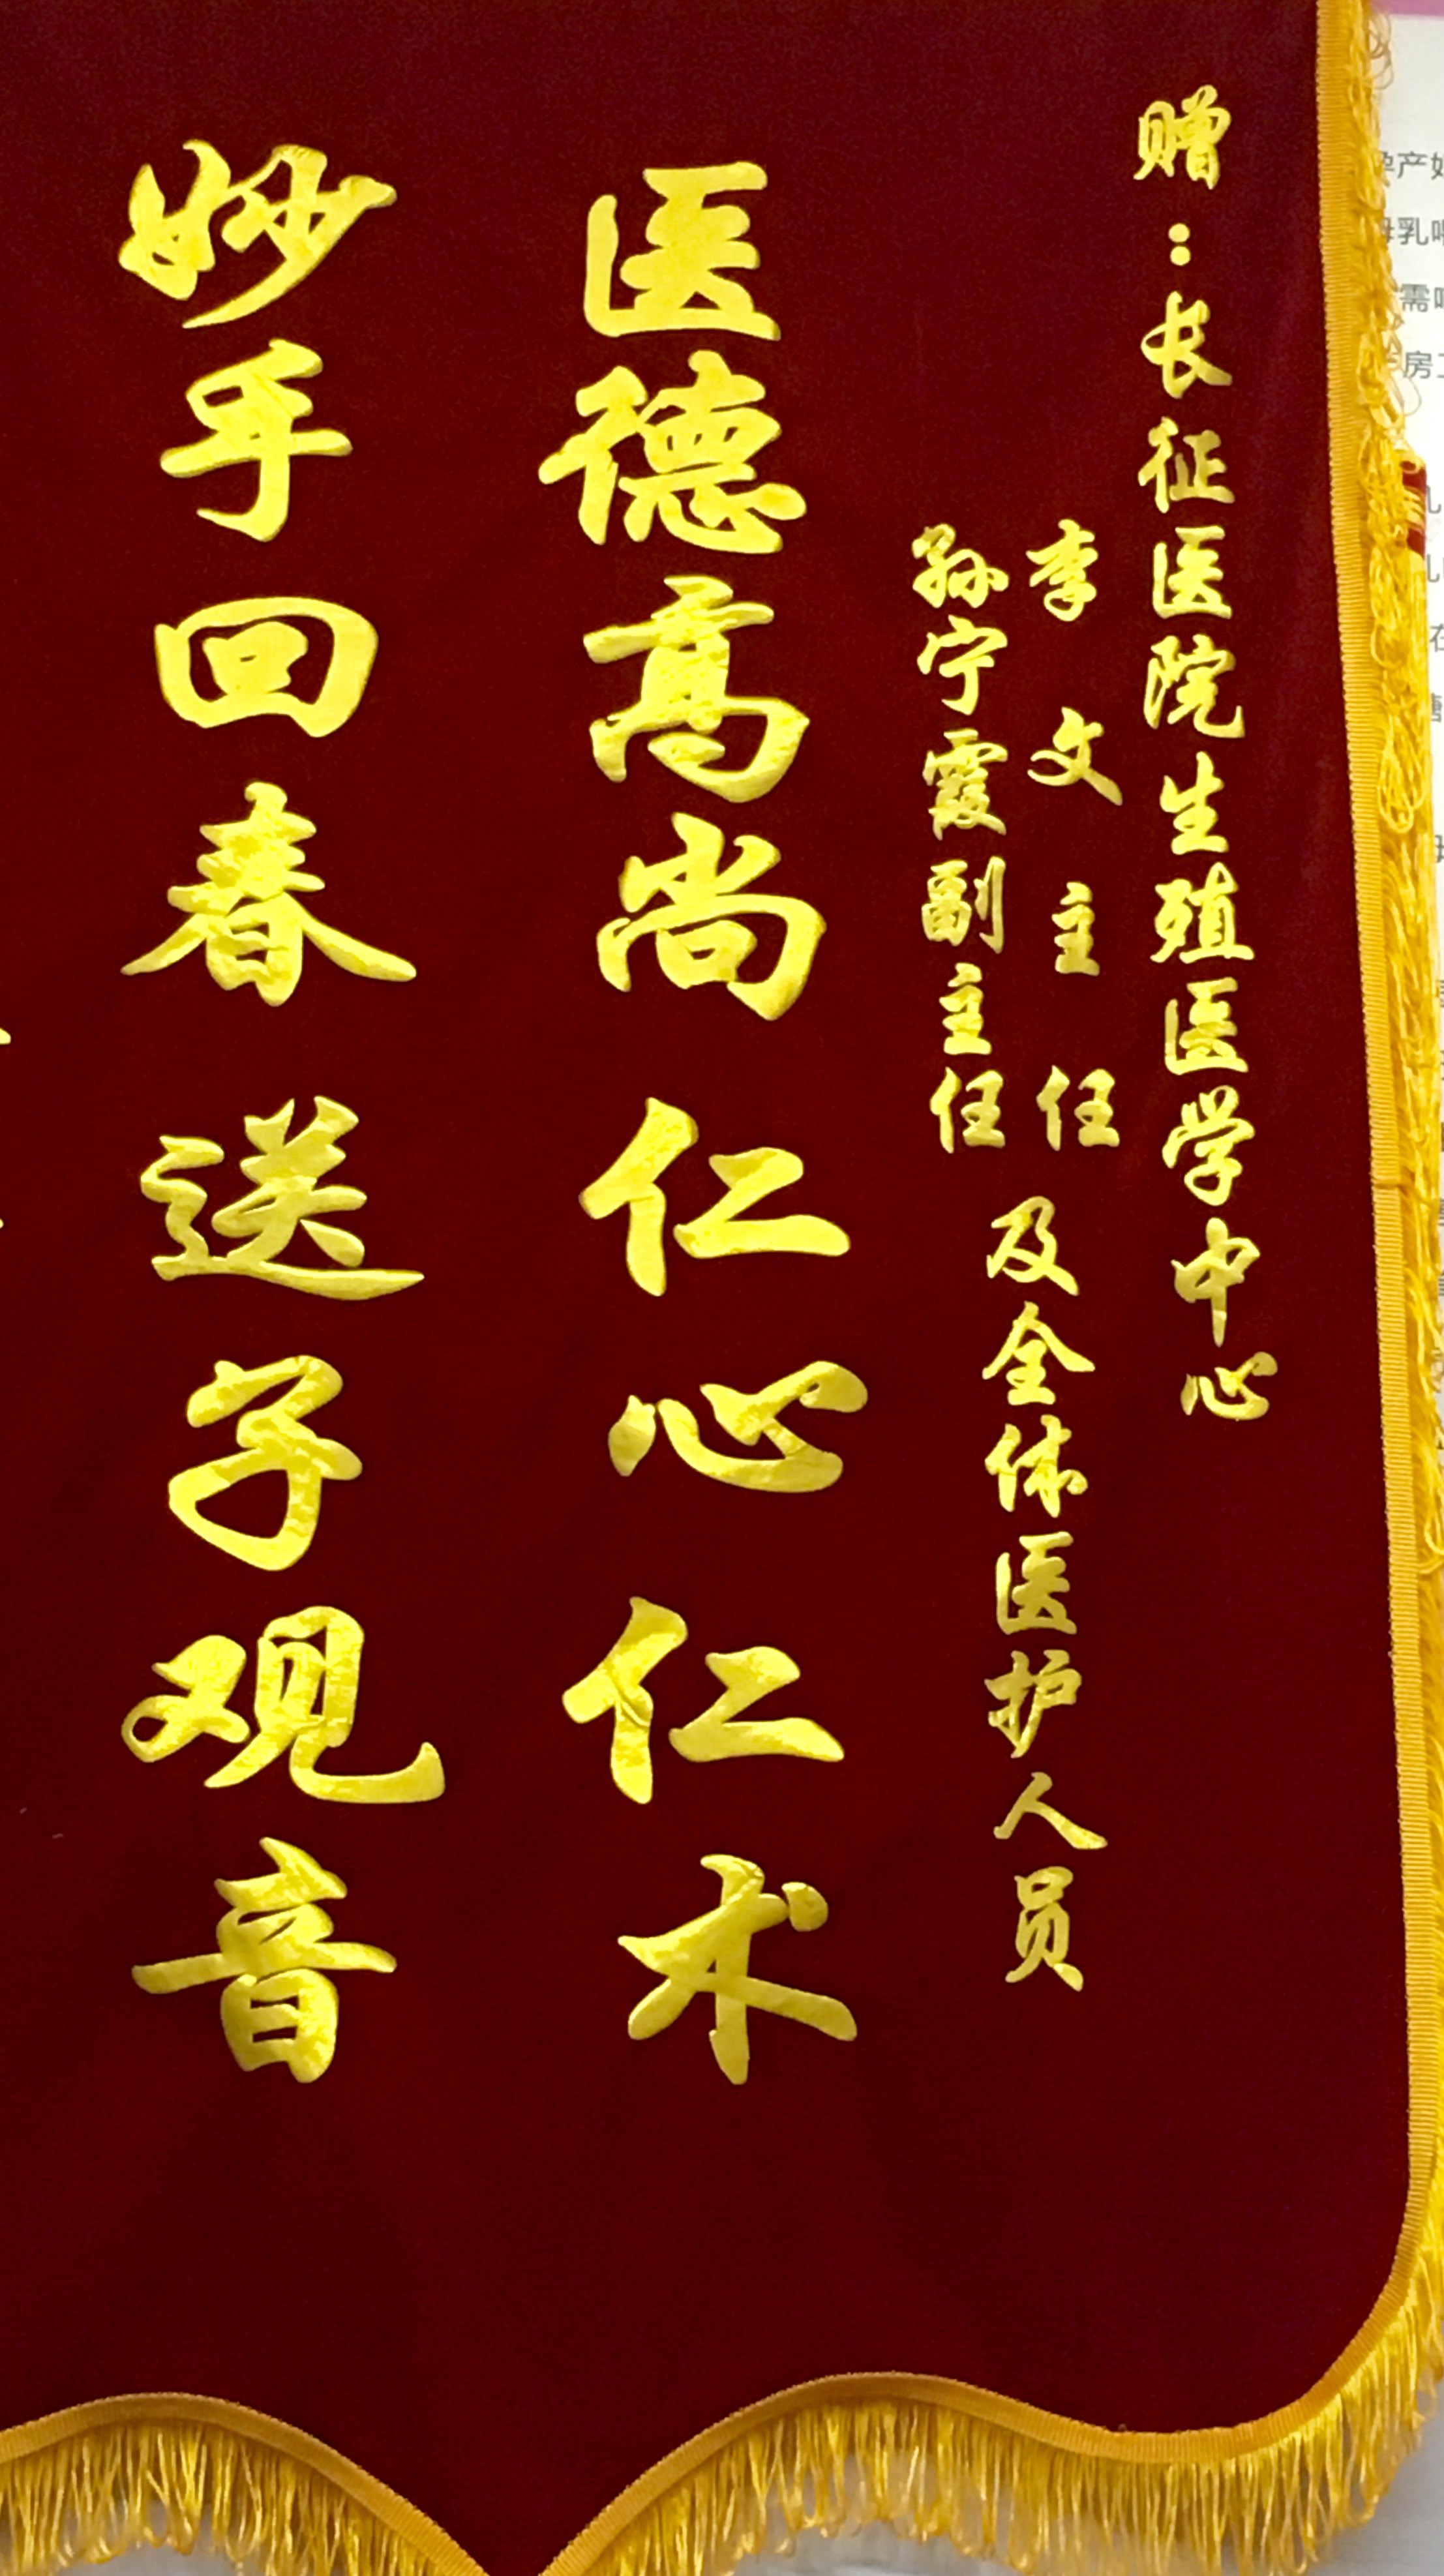 赠：长征医院生殖医学中心
李文主任
孙宁霞副主任
及全体医护人员
医德高尚 仁心仁术
妙手回春 送子观音